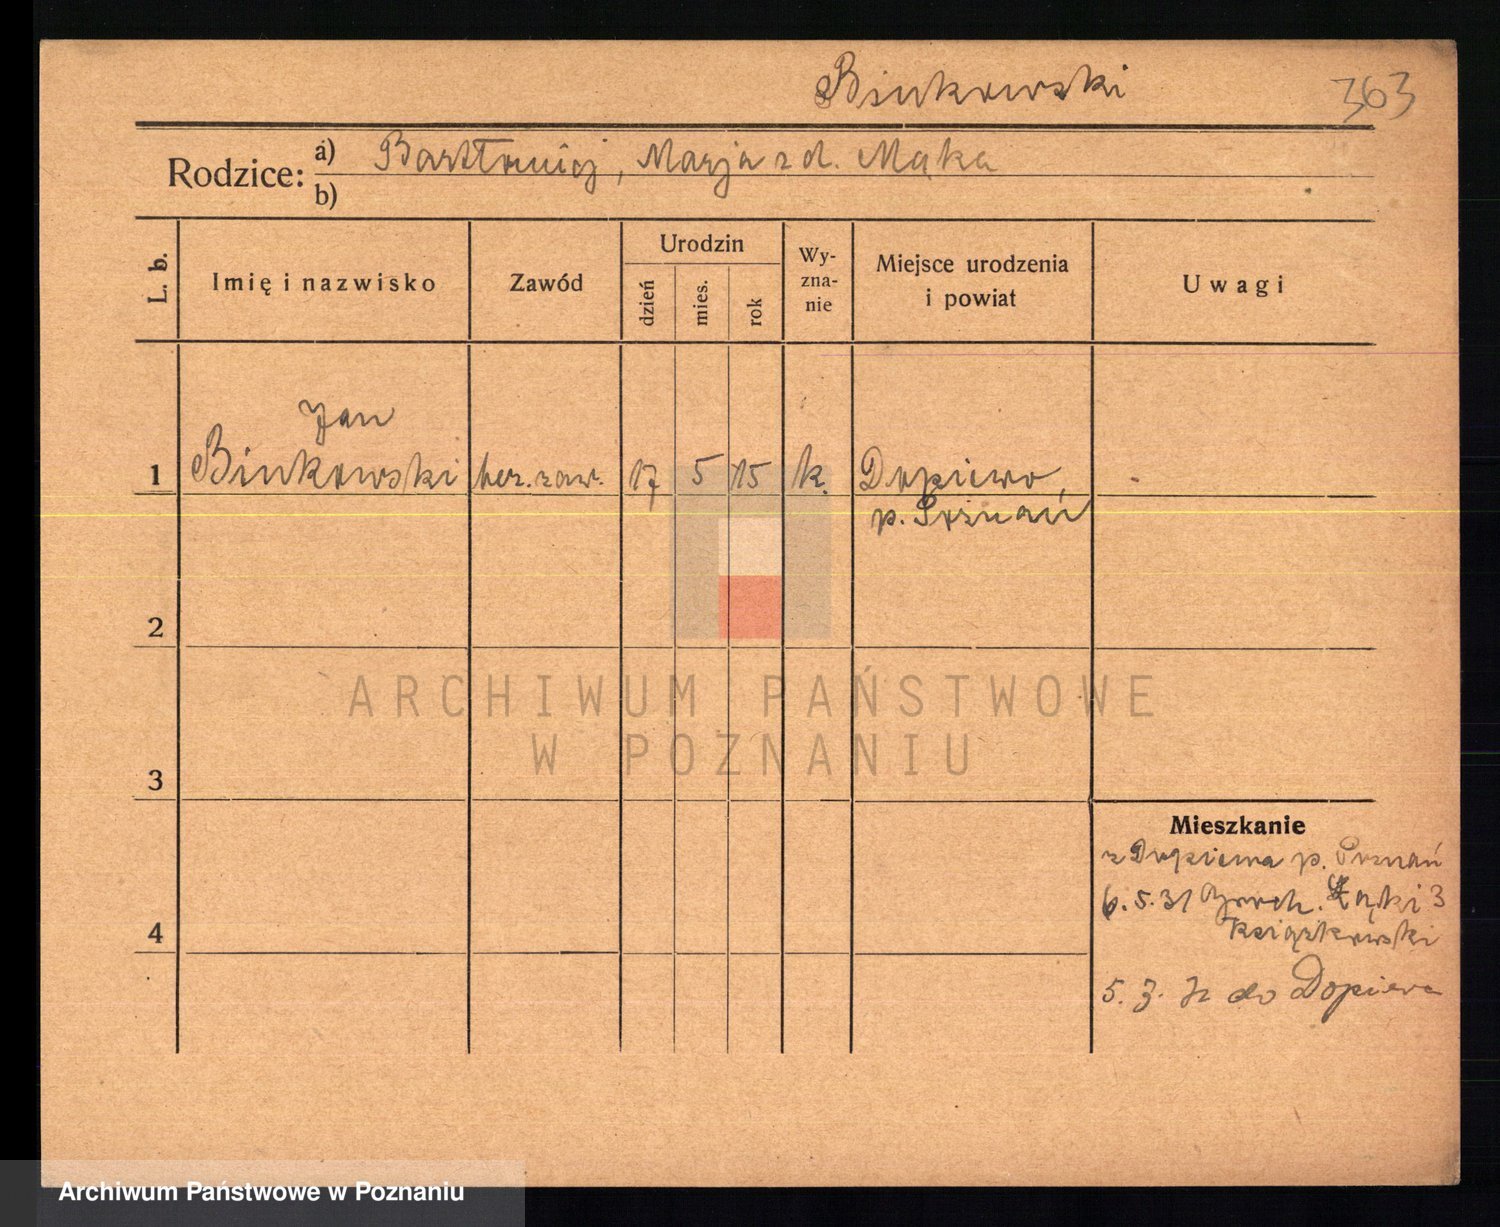 Binkowski 363
Rodzice: a) Bartłomiej, Marja z d. Mąka
b)
L. b. Imię i nazwisko Zawód Urodzin dzień mies. rok Wy-zna-nie Miejsce urodzenia i powiat Uwagi
Jan
1 Binkowski bez. zaw. 17 5 15 k. Dopiewo,
p. Poznań
2
ARCHIWUM PAŃSTWOWE
W POZNANIU
3
Mieszkanie
z Dopiewa p. Poznań
6. 5. 31 Łąki 3
4 Książkowski
5. 3. 32 do Dopiewa
Archiwum Państwowe w Poznaniu